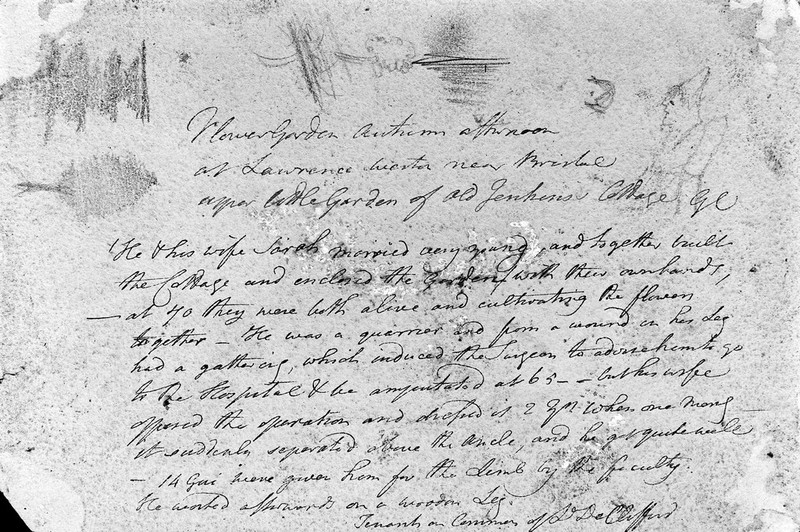 Flower Garden Autumn afternoon
at Lawrence Weston near Bristol
upper little Garden of old Jenkins Cottage
He & his wife Sarah married very young, and together built
the Cottage and enclosed the Garden with their own hands,
— at 70 they were both alive and cultivating the flowers
together — He was a quarrier and from a wound in his Leg
had a gathering, which induced the Surgeon to advise him to go
to the Hospital & be amputated at 65 — but his wife
opposed the operation and dressed it 2 yrs when one morng
it suddenly separated above the Ancle, and he got quite well
— 14 Gui were given him for the Limb by the faculty.
He worked afterwards on a wooden Leg.
Tenants on Common of Ld De Clifford